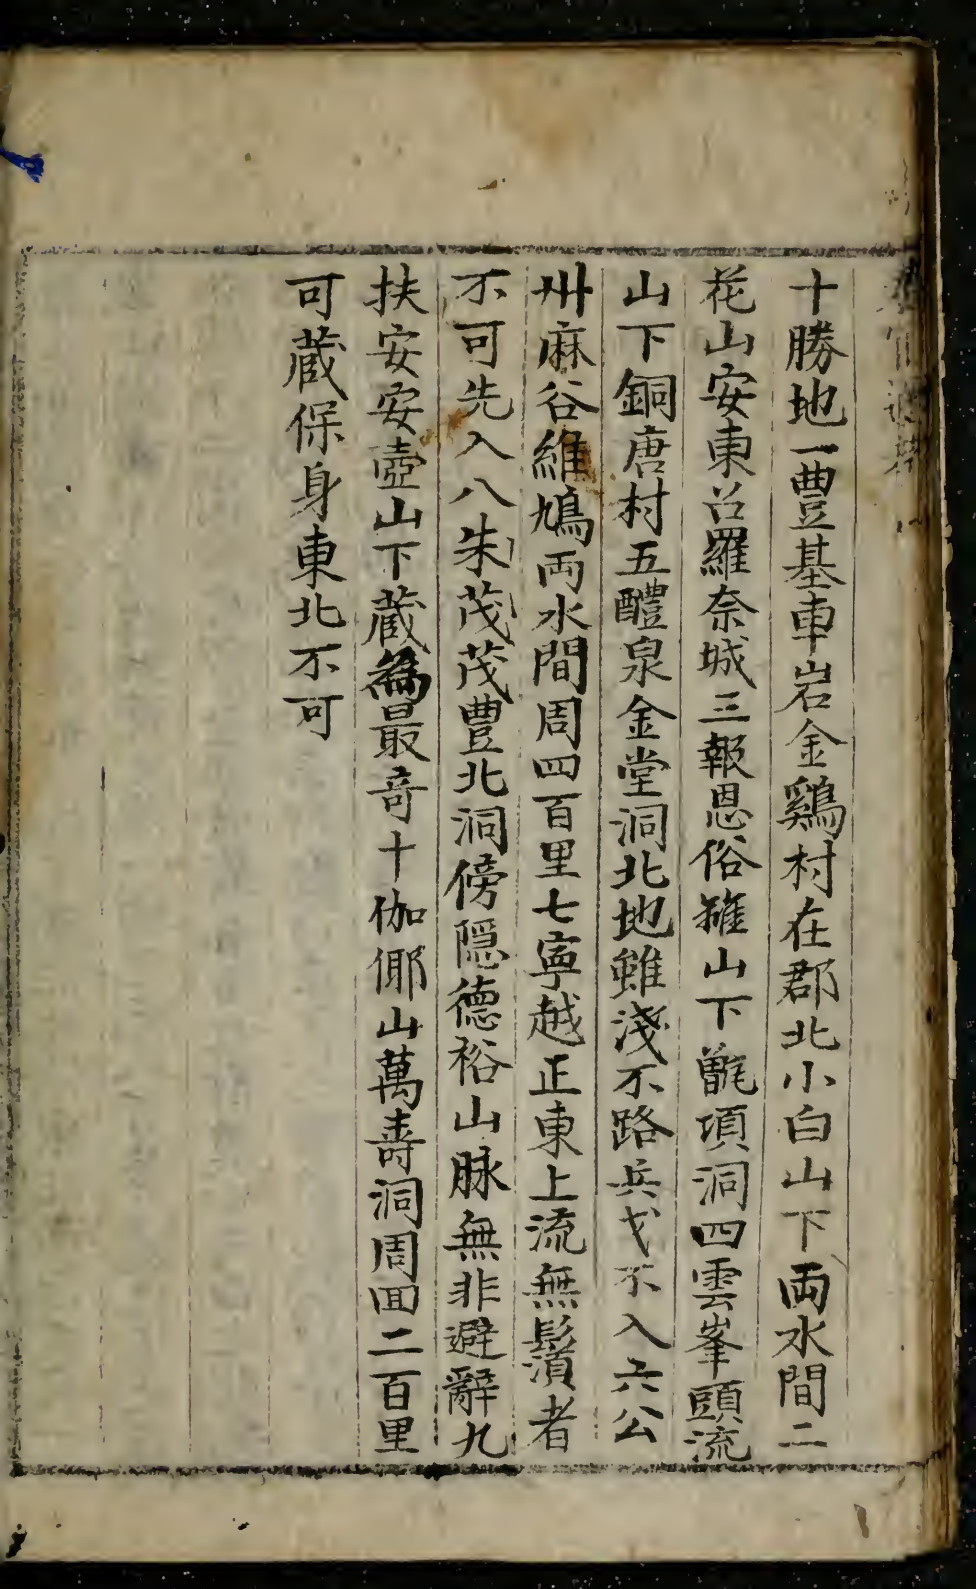 十勝地一豊基車岩金鷄村在郡北小白山下両水間二
花山安東召羅奈城三報恩俗離山下甑項洞四雲峯頭流
山下銅唐村五醴泉金堂洞北地雖淺不路兵戈不入六公
州麻谷維鳩両水間周四百里七寧越正東上流無鬚者
不可先入八朱茂茂豊北洞傍隠德裕山脉無非避辭九
扶安安壺山下蔵爲最竒十伽倻山萬壽洞周回二百里
可蔵保身東北不可